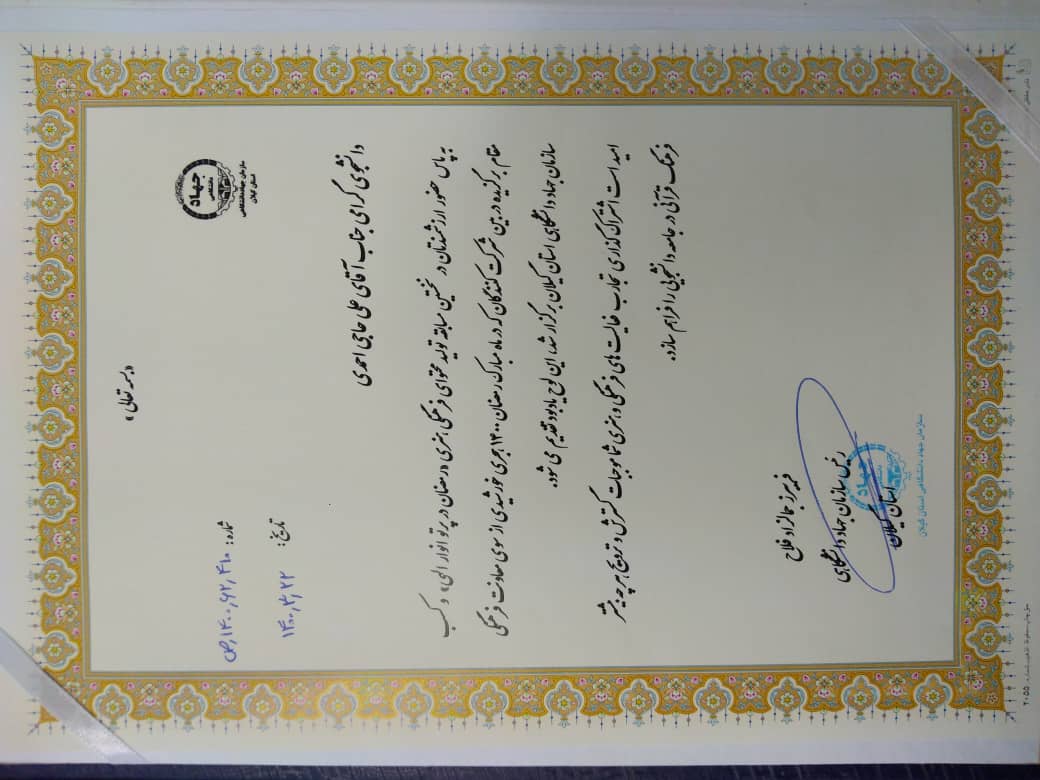 «بسمه تعالی»
جهاد
دانشگاهی
سازمان جهاد دانشگاهی
استان گیلان
شماره: ۱۴۰۰٫۶۲٫۴۱۰٫ص
تاریخ: ۱۴۰۰٫۴٫۲۲
دانشجوی گرامی جناب آقای علی حاجی احمدی
به پاس حضور ارزشمندتان در نخستین مسابقه تولید محتوای فرهنگی هنری «رمضان در پرتو انوار الهی» و کسب
مقام برگزیده در بین شرکت کنندگان که در ماه مبارک رمضان ۱۴۰۰ هجری خورشیدی از سوی معاونت فرهنگی
سازمان جهاد دانشگاهی استان گیلان برگزار شد، این لوح یادبود تقدیم می شود.
امید است اشتراک گذاری تجارب فعالیت های فرهنگی و هنری شما موجبات گسترش و ترویج هر چه بیشتر
فرهنگ قرآنی در جامعه دانشجویی را فراهم سازد.
فریبرز جمالزاد فلاح
رئیس سازمان جهاد دانشگاهی
استان گیلان
جهاد
سازمان جهاد دانشگاهی استان گیلان